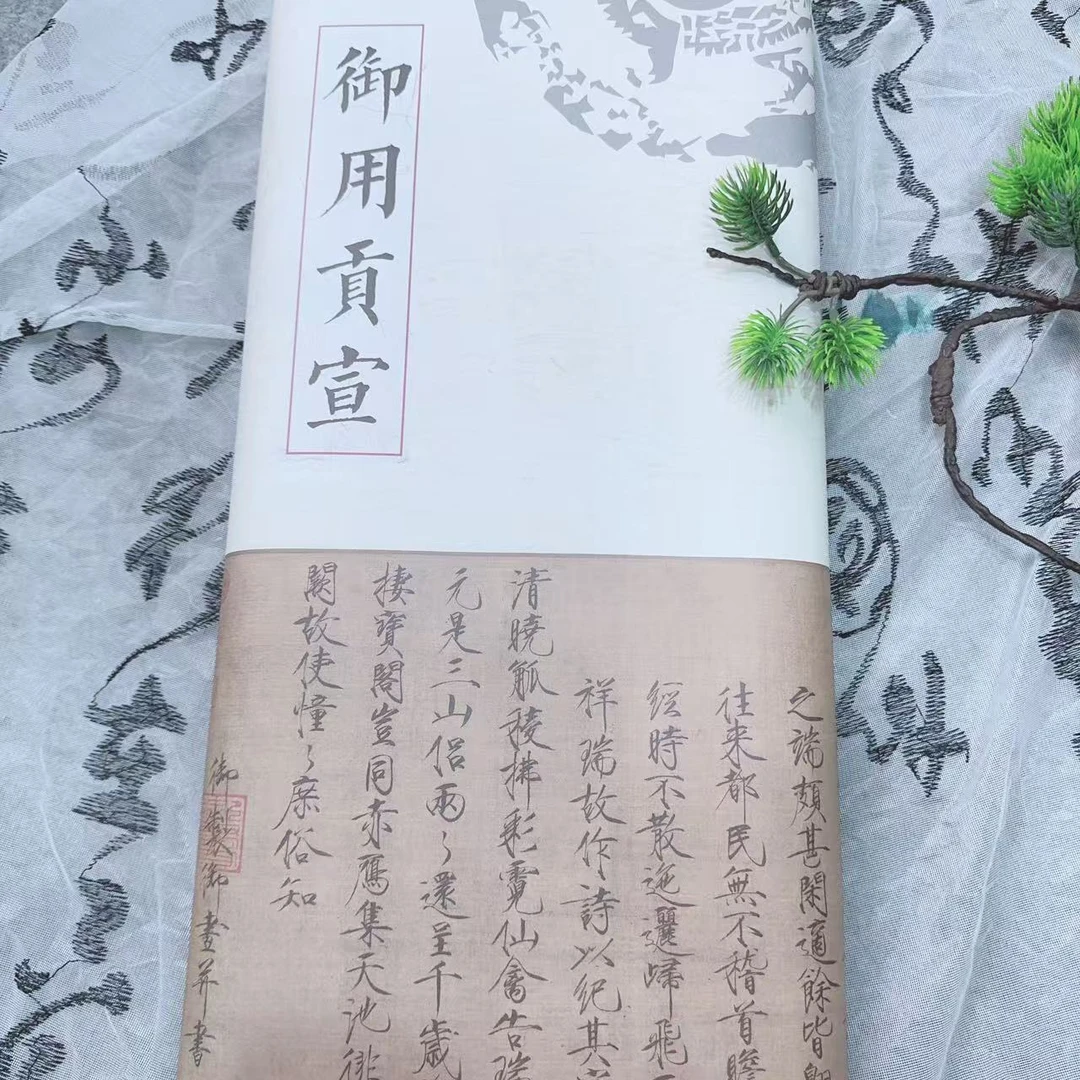 御用貢宣
之端頗甚閑適餘皆翱
往来都民無不稽首瞻
經時不散迤邐歸飛
祥瑞故作詩以紀其
清曉觚稜拂彩霓仙禽告瑞
元是三山侶兩〻還呈千歲
棲寳閣豈同赤鴈集天池徘
闕故使憧〻庶俗知
御製御畫并書